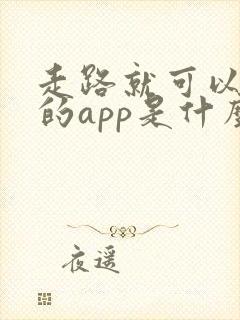 走路就可以
的app是什麼
夜遥